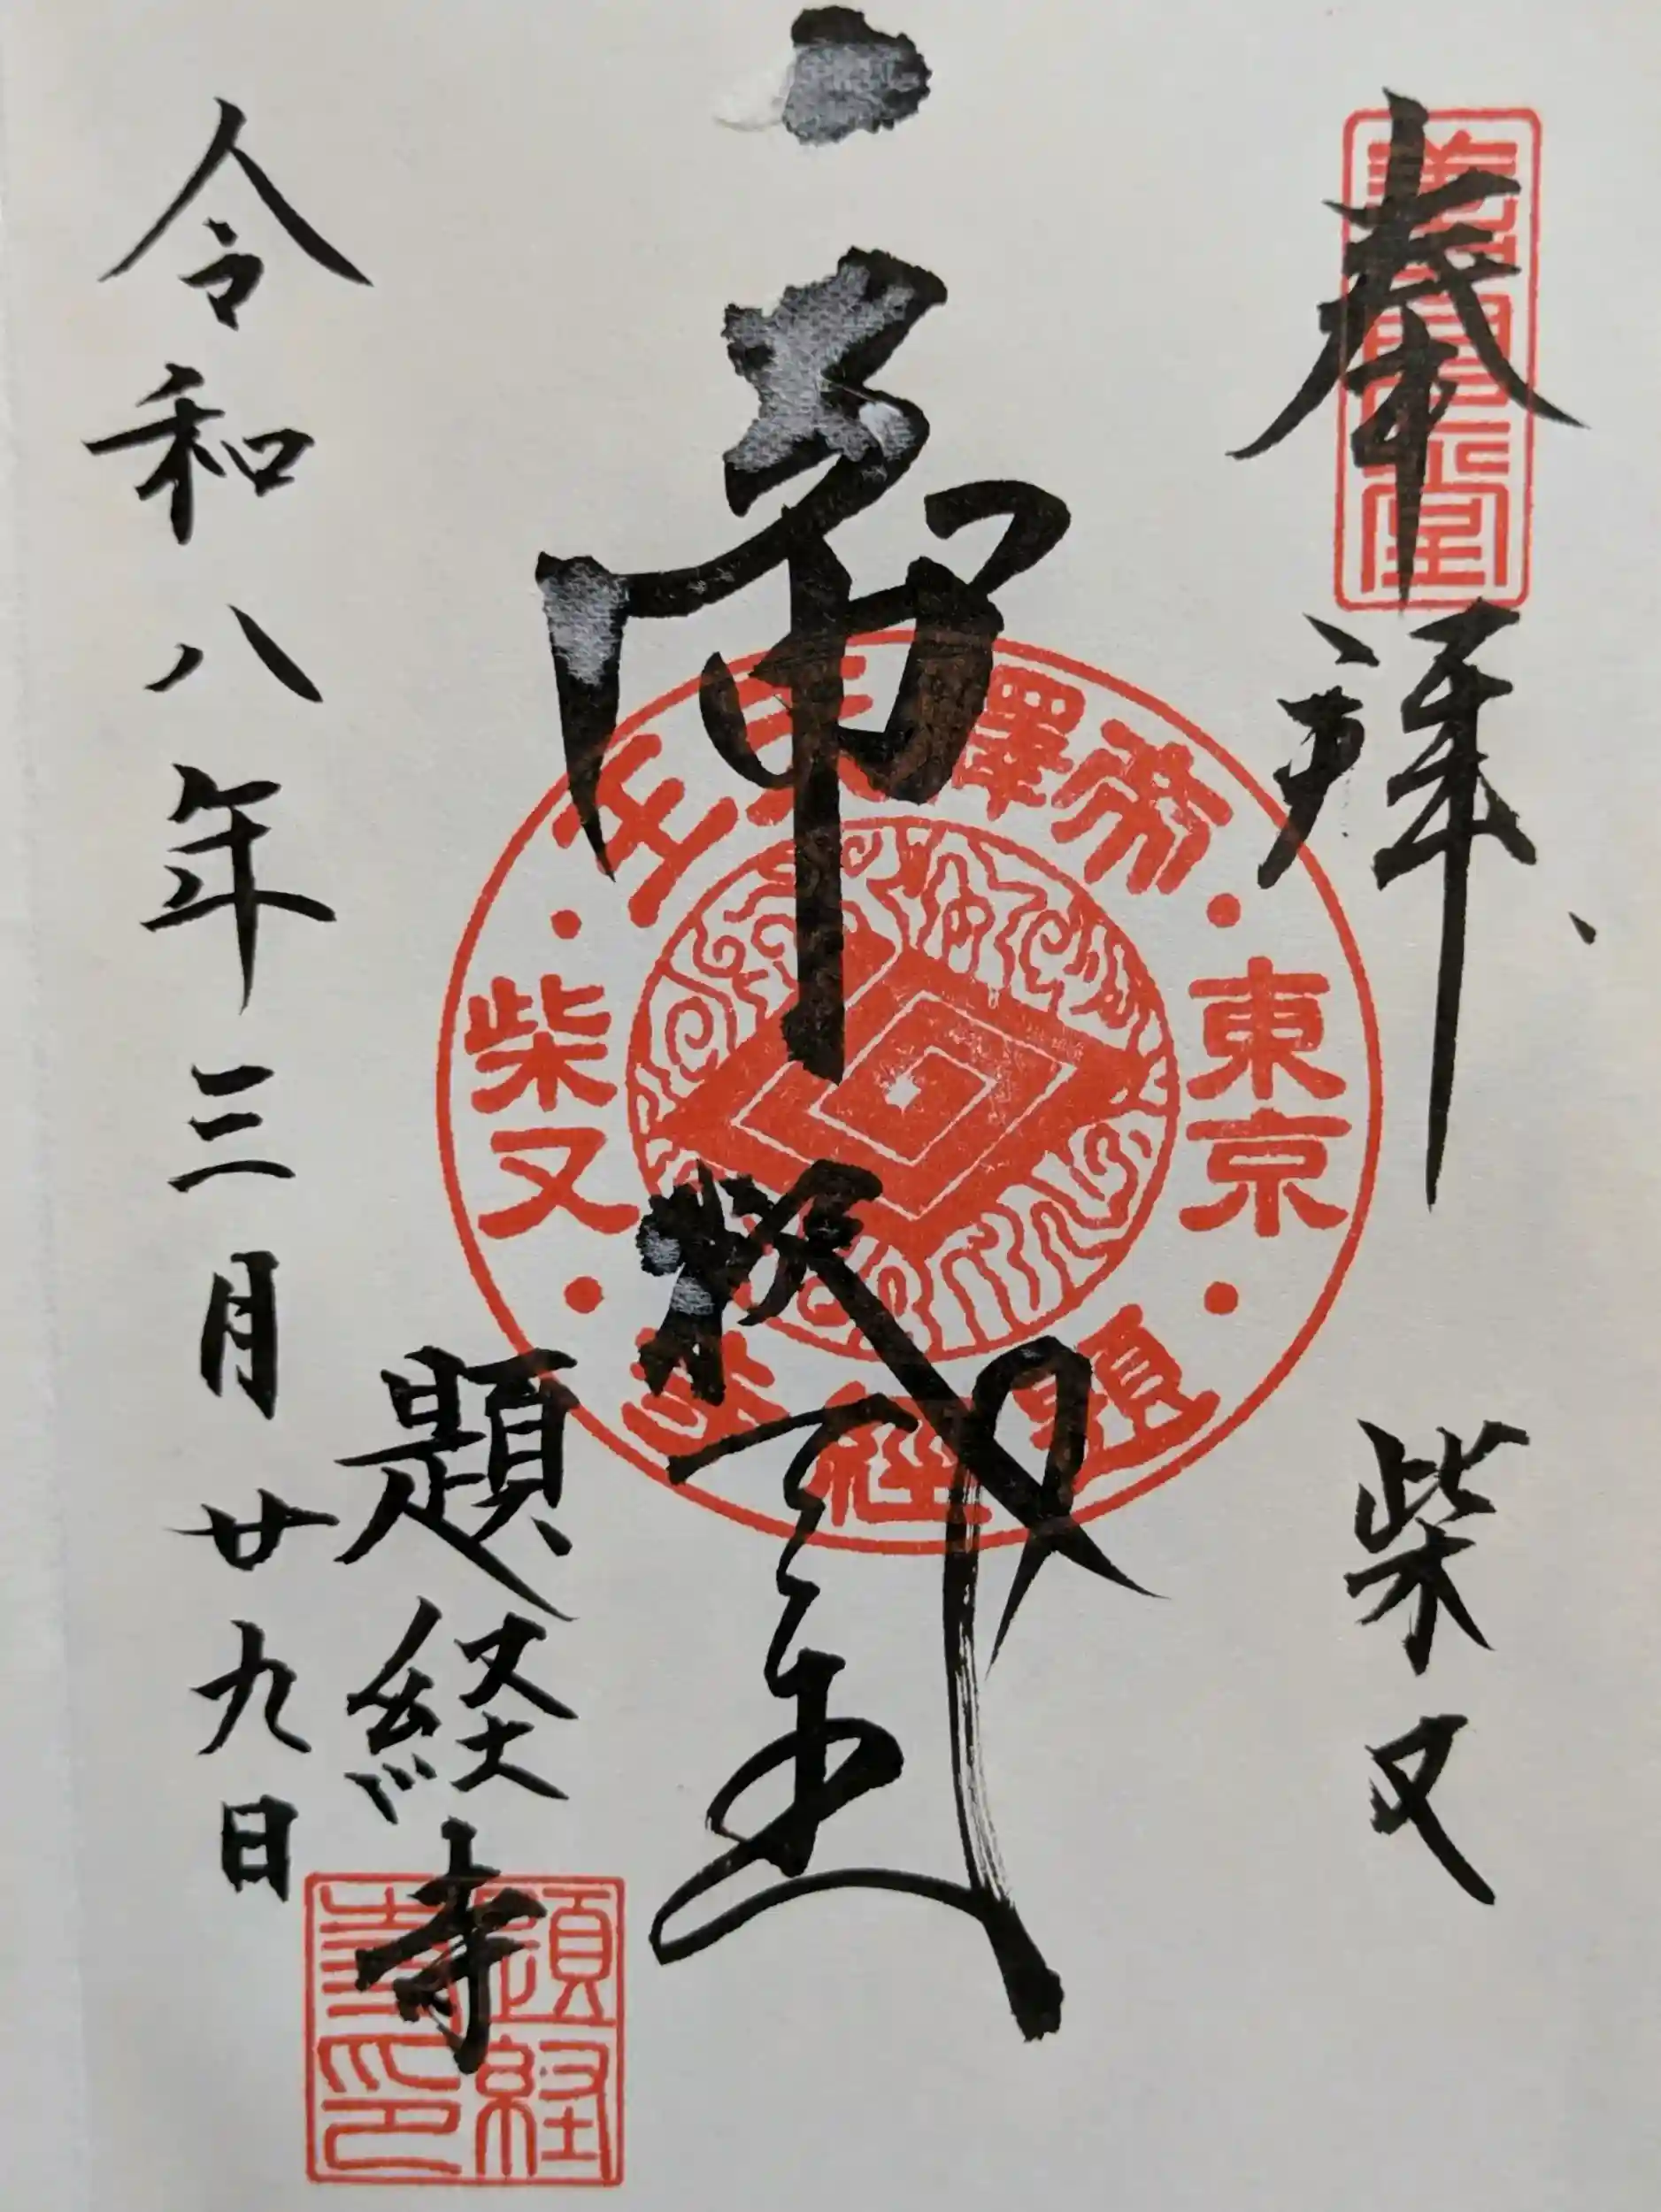 奉拝 柴又
帝釈天王
題経寺
令和八年三月廿九日
帝釋天王
東京
柴又
題経寺
題経寺印